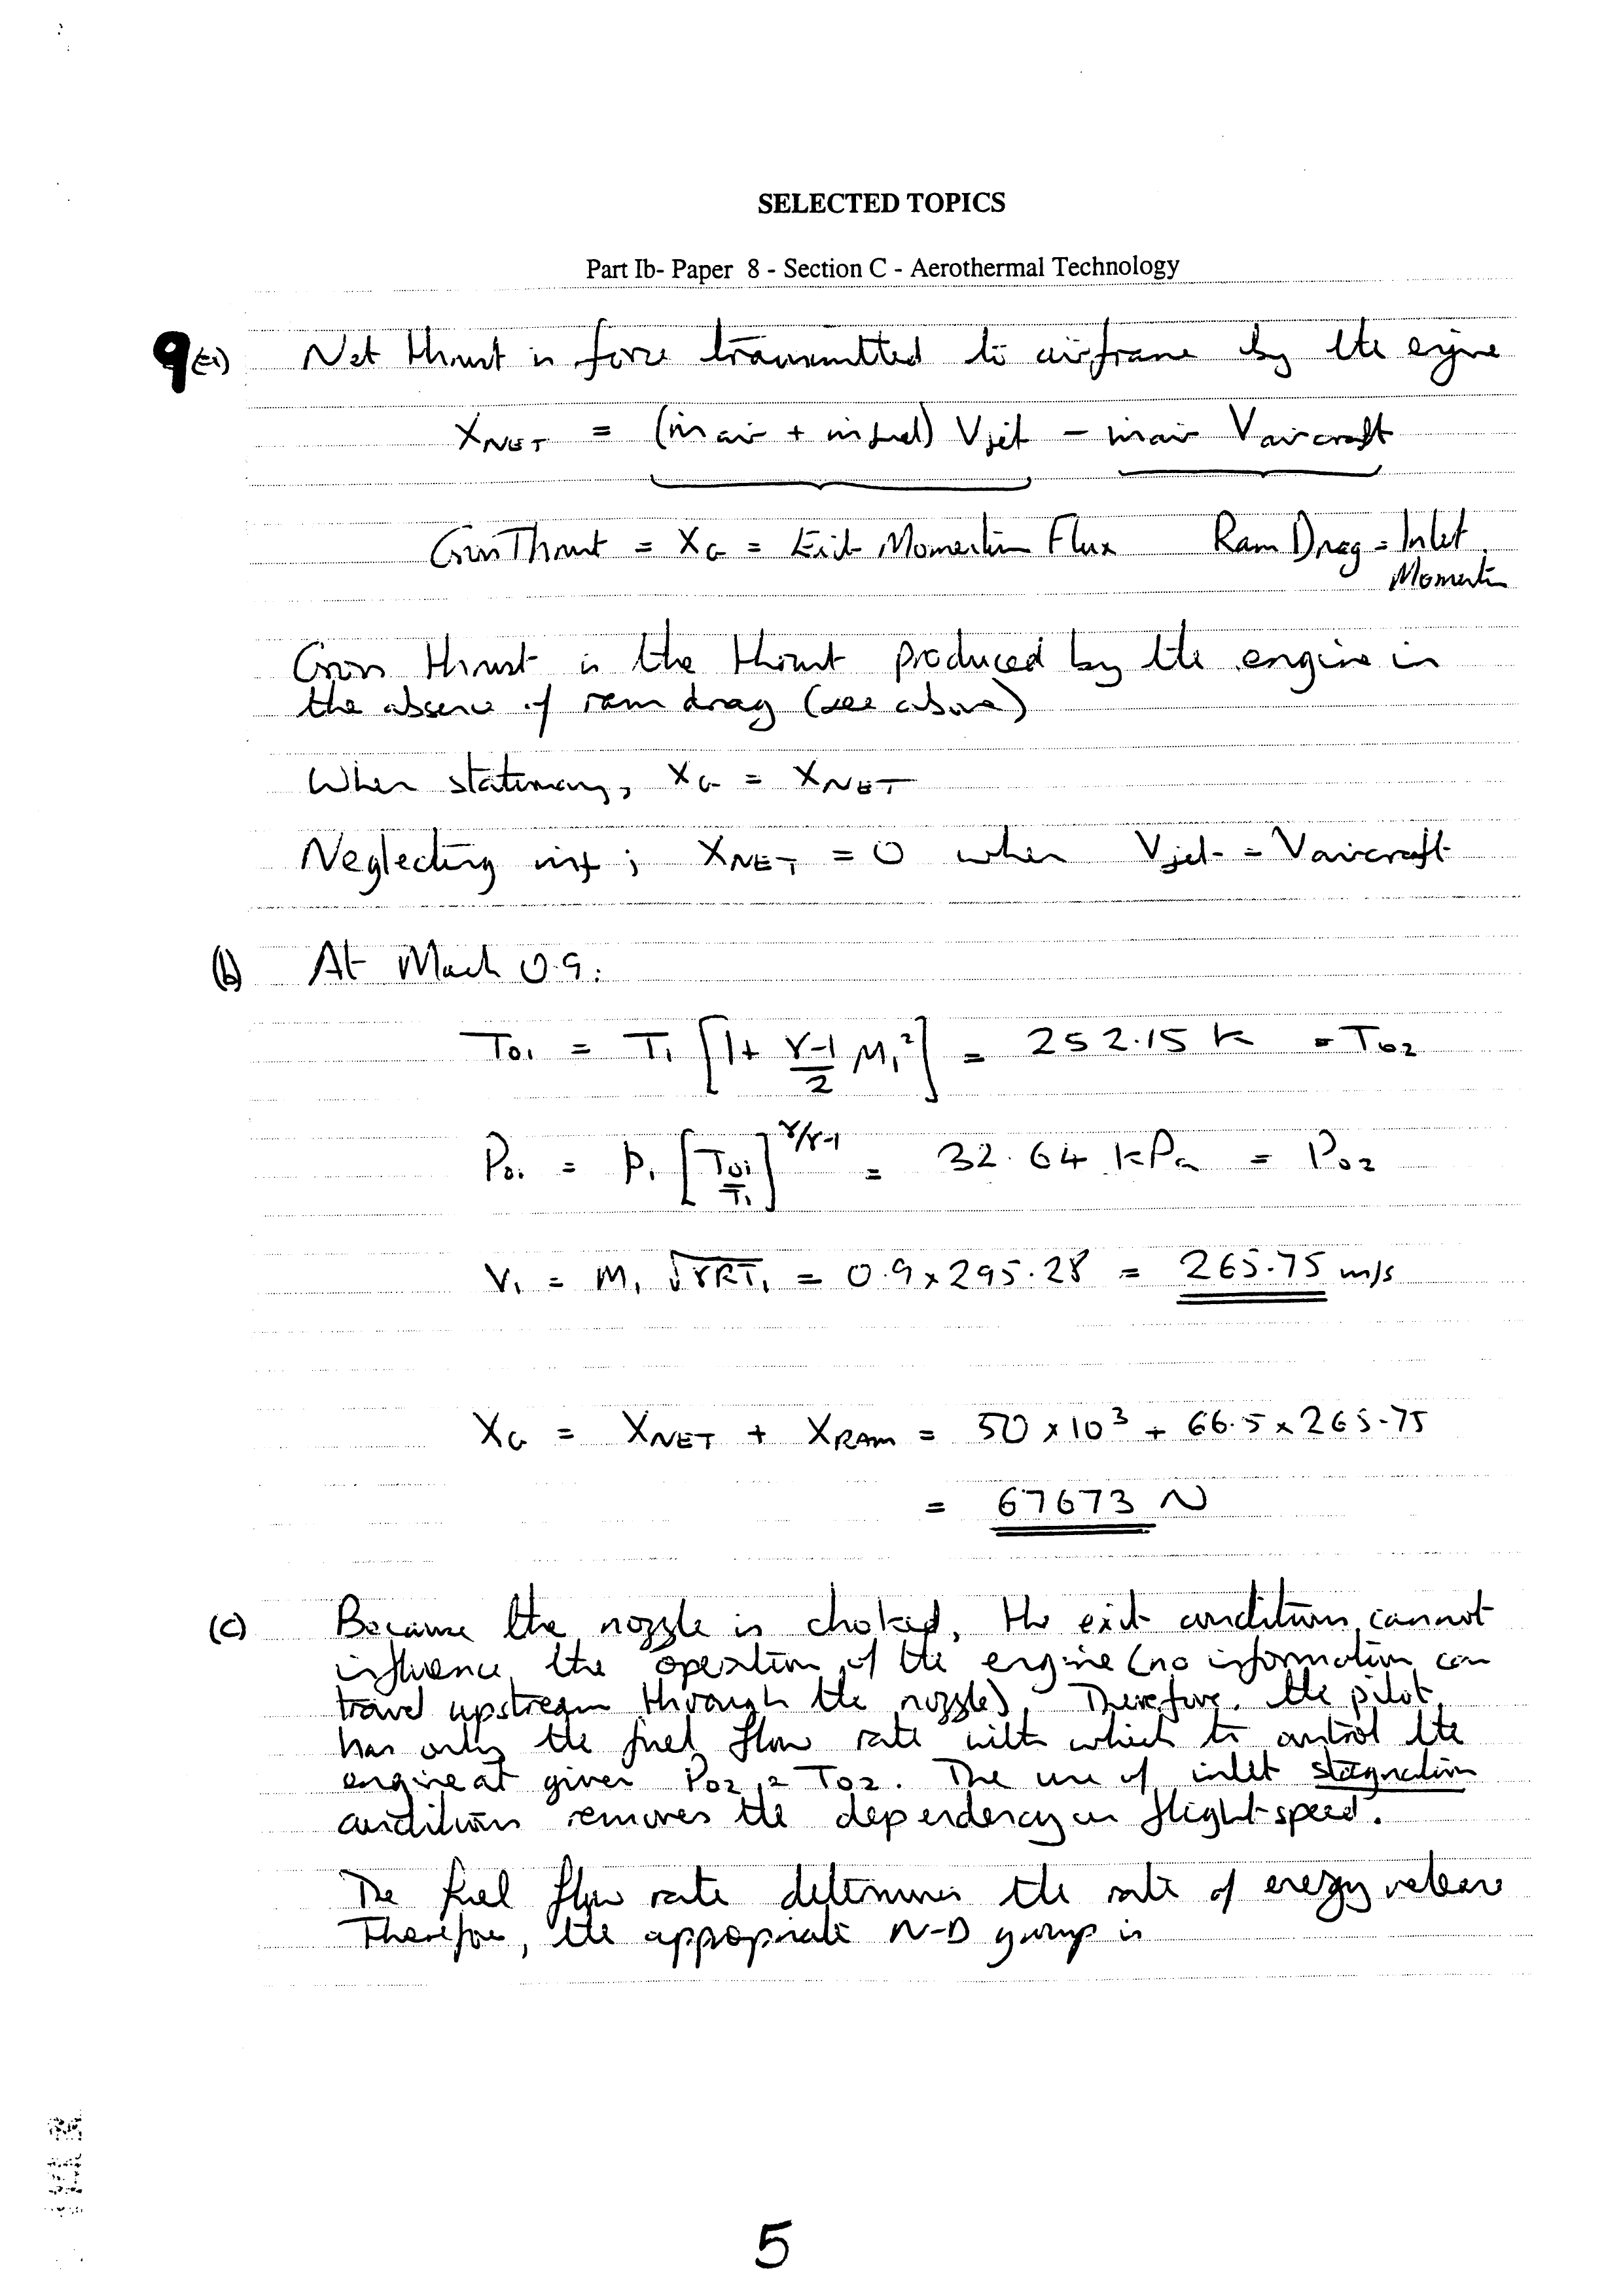 SELECTED TOPICS
Part Ib- Paper 8 - Section C - Aerothermal Technology
9(a) Net thrust is force transmitted to airframe by the engine
X_NET = (ṁair + ṁfuel) Vjet - ṁair Vaircraft
Gross Thrust = X_G = Exit Momentum Flux Ram Drag = Inlet
Momentum
Gross thrust is the thrust produced by the engine in
the absence of ram drag (see above)
When stationary, X_G = X_NET
Neglecting ṁf ; X_NET = 0 when Vjet = Vaircraft
(b) At Mach 0.9:
T01 = T1 [1 + (γ-1)/2 M1²] = 252.15 K = T02
P01 = P1 [T01/T1]^(γ/γ-1) = 32.64 kPa = P02
V1 = M1 √γRT1 = 0.9 x 295.28 = 265.75 m/s
X_G = X_NET + X_RAM = 50 x 10³ + 66.5 x 265.75
= 67673 N
(c) Because the nozzle is choked, the exit conditions cannot
influence the operation of the engine (no information can
travel upstream through the nozzle). Therefore, the pilot
has only the fuel flow rate with which to control the
engine at given P02 & T02. The use of inlet stagnation
conditions removes the dependency on flight speed.
The fuel flow rate determines the rate of energy release
Therefore, the appropriate N-D group is
5